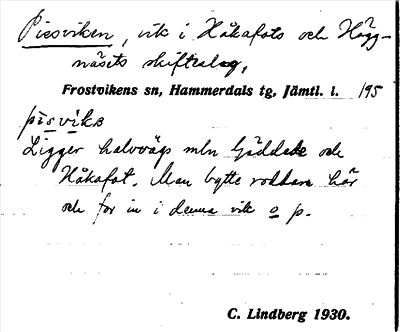 Pissviken, vik i Håkafots och Hägg-
näsets skifteslag,
Frostvikens sn, Hammerdals tg, Jämtl. l. 195
pisvika
Ligger halvvägs mln Gäddede och
Håkafot. Man bytte roddare här
och for in i denna vik o p.
C. Lindberg 1930.